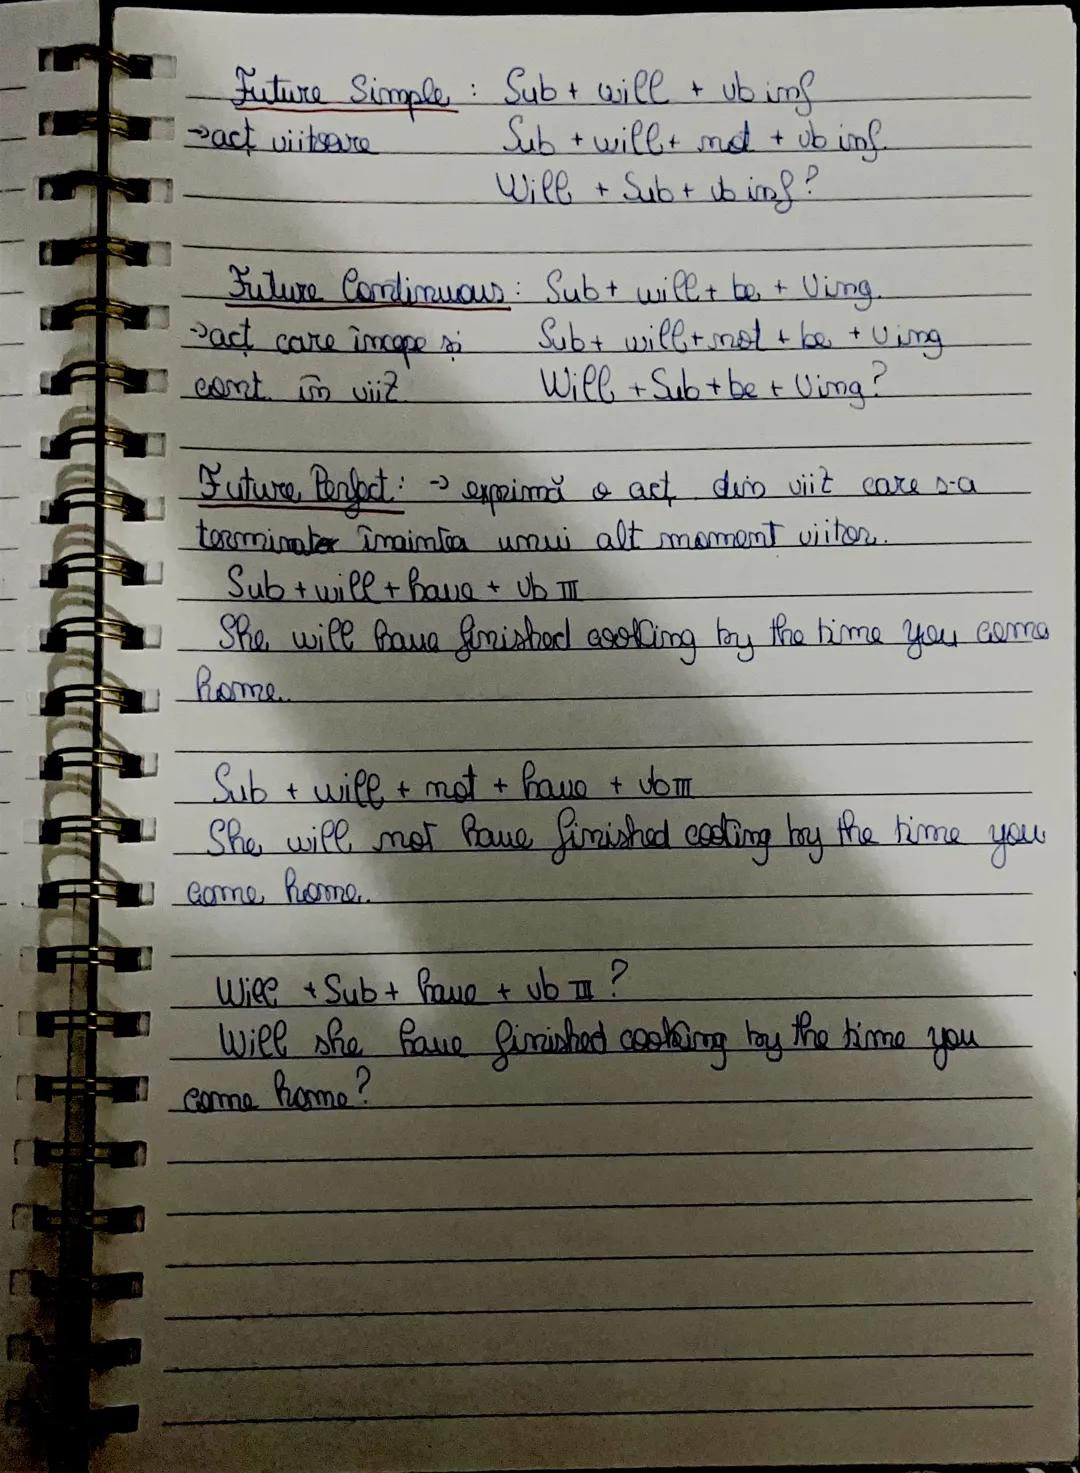 Future Simple : Sub + will + vb inf
→ acț viitoare Sub + will + not + vb inf.
Will + Sub + vb inf?
Future Continuous : Sub + will + be + Ving.
→ acț care începe și Sub + will + not + be + Ving
cont. în viit. Will + Sub + be + Ving?
Future Perfect : → exprimă o acț din viit care s-a
terminat înaintea unui alt moment viitor.
Sub + will + have + vb III
She will have finished cooking by the time you come
home.
Sub + will + not + have + vb III
She will not have finished cooking by the time you
come home.
Will + Sub + have + vb III ?
Will she have finished cooking by the time you
come home?